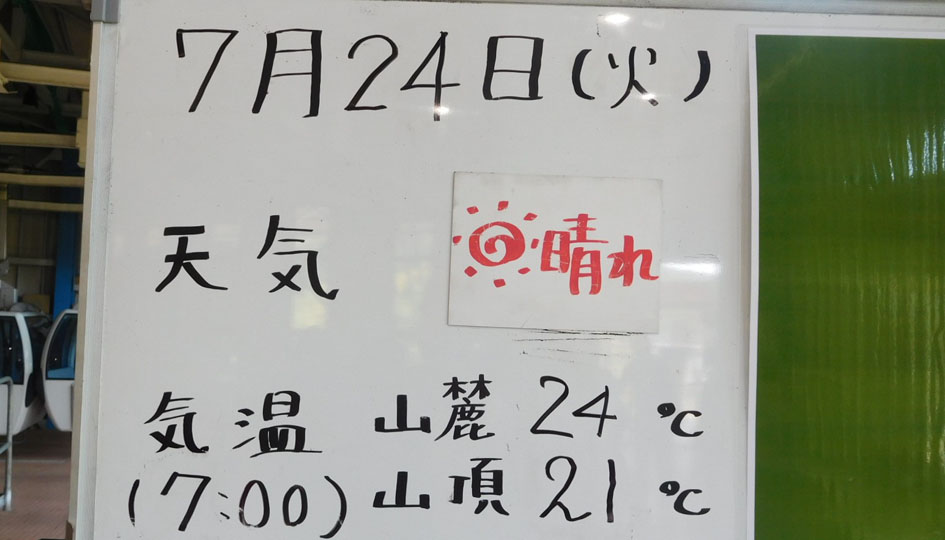 7月24日(火)
天気 晴れ
気温 山麓 24℃
(7:00) 山頂 21℃